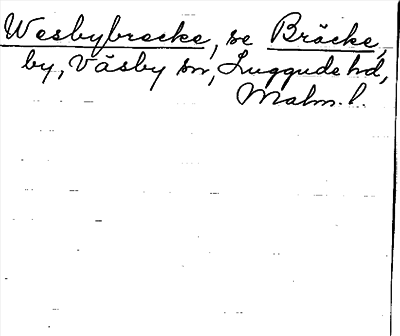 Wesbybrocke, se Bräcke,
by, Väsby sn, Luggude hd,
Malm. l.